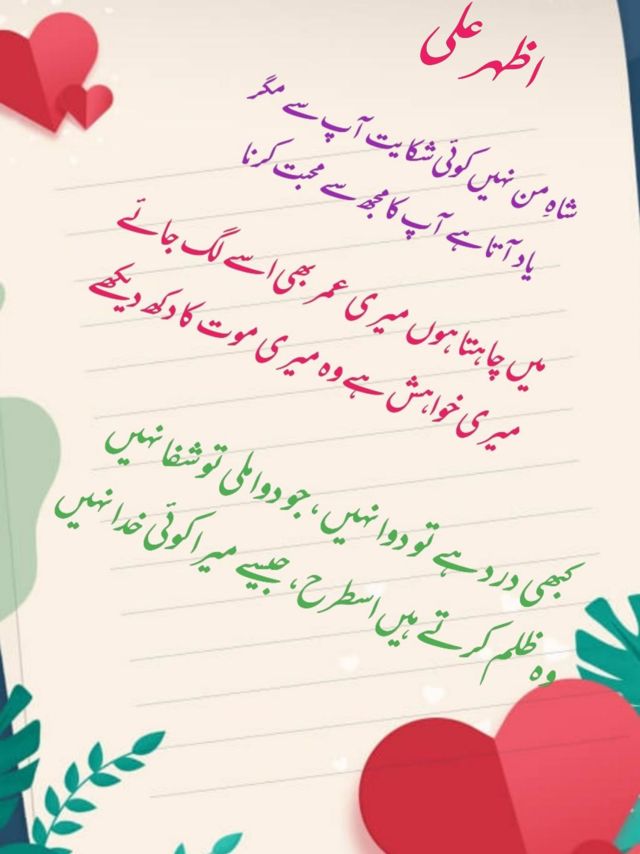 اظہر علی
شاہِ من نہیں کوئی شکایت آپ سے مگر
یاد آتا ہے آپ کا مجھ سے محبت کرنا
میں چاہتا ہوں میری عمر بھی اسے لگ جائے
میری خواہش ہے وہ میری موت کا دکھ دیکھے
کبھی درد ہے تو دوا نہیں ، جو دوا ملی تو شفا نہیں
وہ ظلم کرتے ہیں اسطرح ، جیسے میرا کوئی خدا نہیں